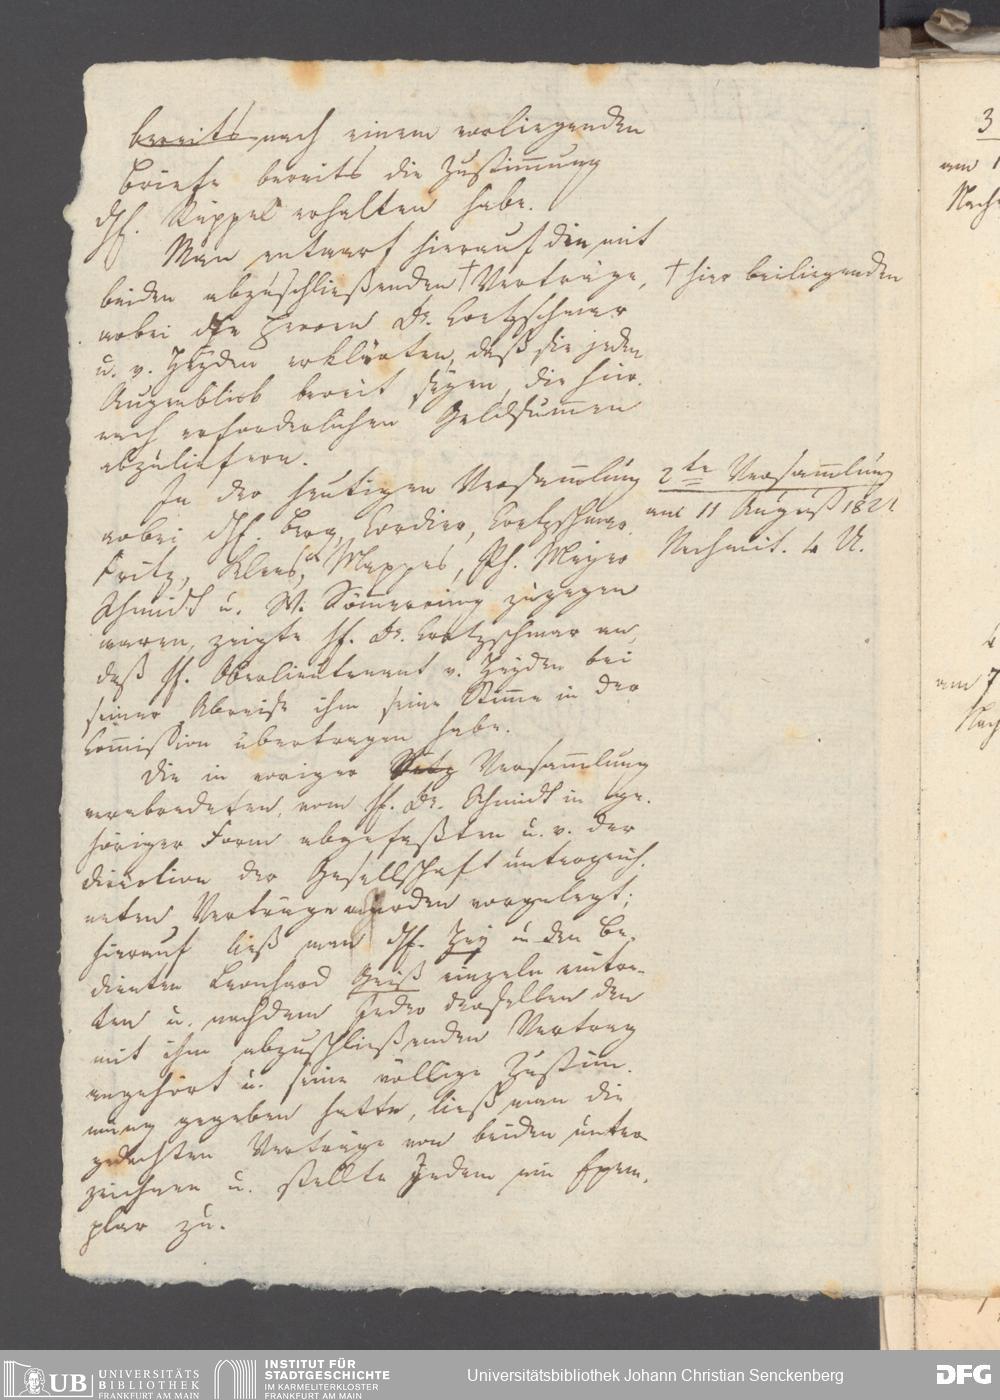 bereits nach einem vorliegenden
Briefe bereits die Zustimmung
Hr. Rüppel erhalten habe.
Man entwarf hierauf die mit
beiden abzuschließenden † Verträge, † hier beiliegenden
wobei die Herren Dr. Cretzschmar
u. v. Heyden erklärten, daß sie jeden
Augenblick bereit seyen, die hier-
nach erforderlichen Geldsummen
abzuliefern.
2te Versam̄lung
am 11 August 1821
Nachmit. 4 U.
In der heutigen Versam̄lung
wobei HH. Berg, Cordier, Cretzschmar
Fritz, Kloß, Mappes, Ph. Meyer
Schmidt u. W. Sömmering zugegen
waren, zeigte H. Dr. Cretzschmar an,
daß H. Oberlieutenant v. Heyden bei
seiner Abreise ihm seine Stimme in der
Com̄ission übertragen habe.
Die in voriger Versam̄lung
verabredeten, vom H. Dr. Schmidt in ge-
höriger Form abgefaßten u. v. der
Direction der Gesellschaft unterzeich-
neten Verträge wurden vorgelegt;
hierauf ließ man H. Hey u den Be-
dienten Leonhard Geiß einzeln eintre-
ten u. nachdem Jeder derselben den
mit ihm abzuschließenden Vertrag
angehört u. seine völlige Zustim-
mung gegeben hatte, ließ man die
gedachten Verträge von beiden unter-
zeichnen u. stellte Jedem ein Exem-
plar zu.
3
am 1
Nach
am 7
Nach
UB UNIVERSITÄTS
BIBLIOTHEK
FRANKFURT AM MAIN
INSTITUT FÜR
STADTGESCHICHTE
IM KARMELITERKLOSTER
FRANKFURT AM MAIN
Universitätsbibliothek Johann Christian Senckenberg
DFG